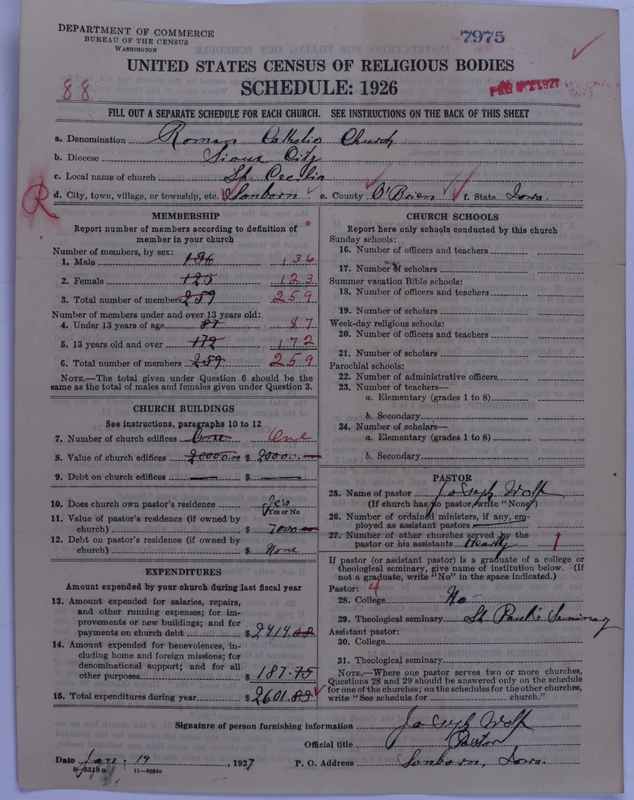 DEPARTMENT OF COMMERCE
BUREAU OF THE CENSUS
WASHINGTON
7975
UNITED STATES CENSUS OF RELIGIOUS BODIES
SCHEDULE: 1926
88
1927
FILL OUT A SEPARATE SCHEDULE FOR EACH CHURCH. SEE INSTRUCTIONS ON THE BACK OF THIS SHEET
a. Denomination Roman Catholic Church
b. Diocese Sioux City
c. Local name of church St. Cecilia
R d. City, town, village, or township, etc. Sanborn e. County O'Brien f. State Iowa.
MEMBERSHIP
Report number of members according to definition of
member in your church
Number of members, by sex:
1. Male 136 136
2. Female 123 123
3. Total number of members 259 259
Number of members under and over 13 years old:
4. Under 13 years of age 87 87
5. 13 years old and over 172 172
6. Total number of members 259 259
NOTE.—The total given under Question 6 should be
the same as the total of males and females given under Question 3.
CHURCH BUILDINGS
See instructions, paragraphs 10 to 12
7. Number of church edifices One One
8. Value of church edifices 20000.00 $ 20000.
9. Debt on church edifices — $ —
10. Does church own pastor's residence Yes
Yes or No
11. Value of pastor's residence (if owned by
church) $ 7000.00
12. Debt on pastor's residence (if owned by
church) $ None
EXPENDITURES
Amount expended by your church during last fiscal year
13. Amount expended for salaries, repairs,
and other running expenses; for im-
provements or new buildings; and for
payments on church debt $ 2414.08
14. Amount expended for benevolences, in-
cluding home and foreign missions; for
denominational support; and for all
other purposes $ 187.75
15. Total expenditures during year $ 2601.83
CHURCH SCHOOLS
Report here only schools conducted by this church
Sunday schools:
16. Number of officers and teachers
17. Number of scholars
Summer vacation Bible schools:
18. Number of officers and teachers
19. Number of scholars
Week-day religious schools:
20. Number of officers and teachers
21. Number of scholars
Parochial schools:
22. Number of administrative officers
23. Number of teachers—
a. Elementary (grades 1 to 8)
b. Secondary
24. Number of scholars—
a. Elementary (grades 1 to 8)
b. Secondary
PASTOR
25. Name of pastor Joseph Wolf
(If church has no pastor, write "None")
26. Number of ordained ministers, if any, em-
ployed as assistant pastors
27. Number of other churches served by the
pastor or his assistants 1
If pastor (or assistant pastor) is a graduate of a college or
theological seminary, give name of institution below. (If
not a graduate, write "No" in the space indicated.)
Pastor: 4
28. College No
29. Theological seminary St. Paul's Seminary
Assistant pastor:
30. College
31. Theological seminary
NOTE.—Where one pastor serves two or more churches,
Questions 28 and 29 should be answered only on the schedule
for one of the churches; on the schedules for the other churches,
write "See schedule for church."
Signature of person furnishing information Joseph Wolf
Official title Pastor
Date Jan. 19, 1927 P. O. Address Sanborn, Iowa.